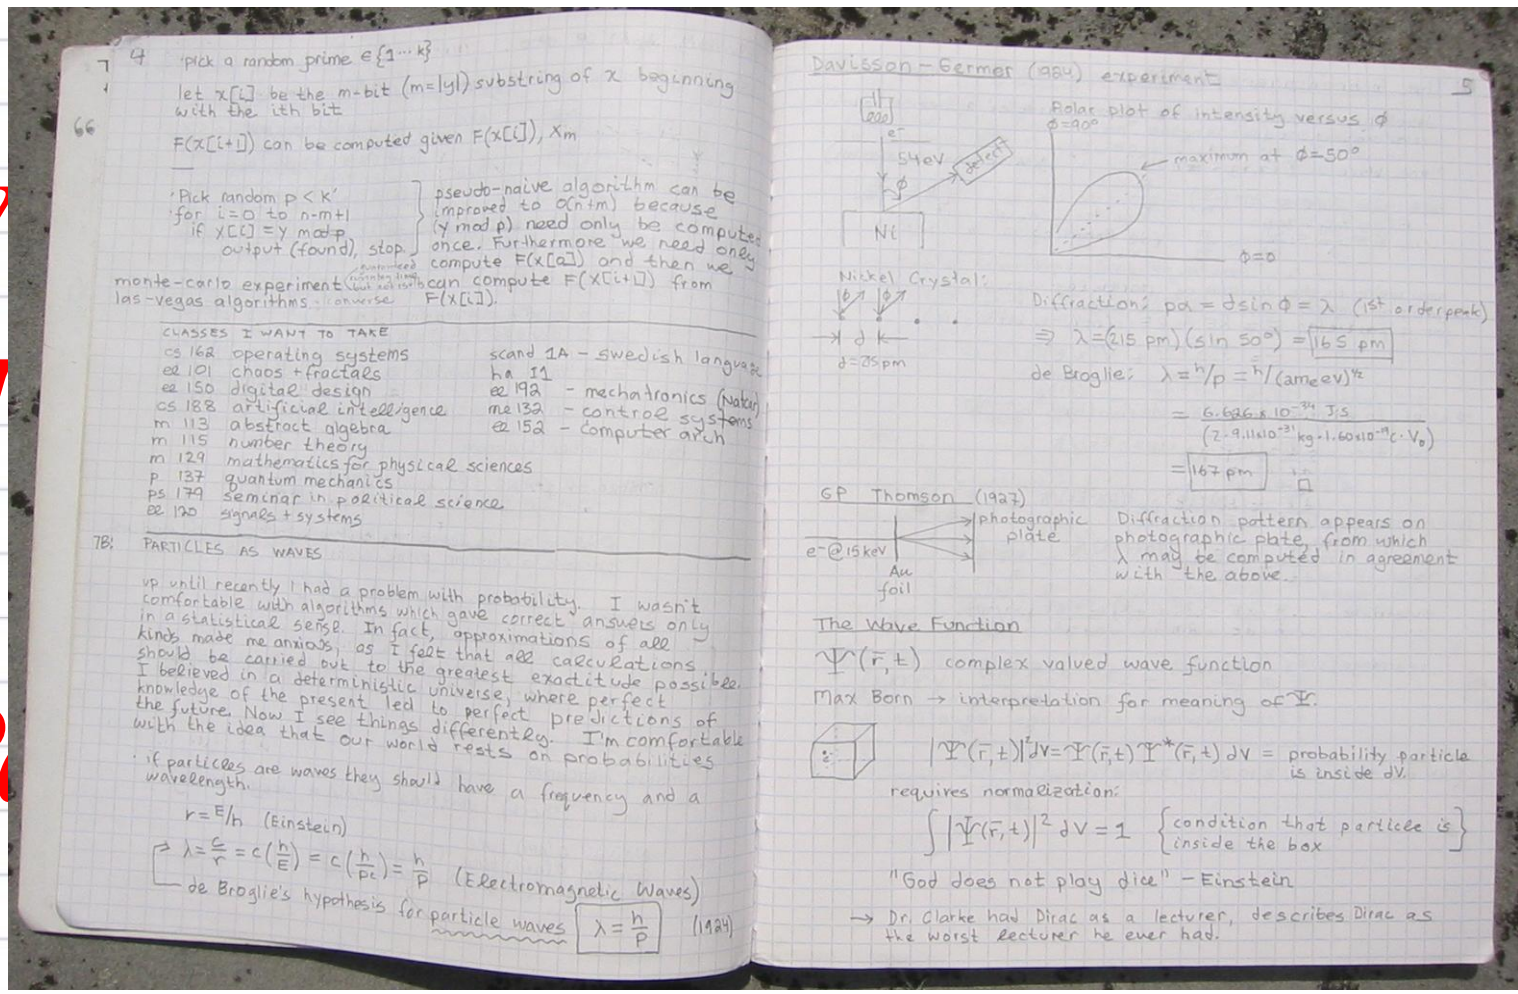 4
pick a random prime ∈ {1 ... k}
let x[i] be the m-bit (m=|y|) substring of x beginning
with the ith bit
66
F(x[i+1]) can be computed given F(x[i]), Xm
'Pick random p < k'
for i=0 to n-m+1
if x[i] = y mod p
output (found), stop.
pseudo-naive algorithm can be
improved to O(n+m) because
(y mod p) need only be computed
once. Furthermore we need only
compute F(x[0]) and then we
can compute F(x[i+1]) from
F(x[i]).
monte-carlo experiment
las-vegas algorithms converse
CLASSES I WANT TO TAKE
cs 162 operating systems
ee 101 chaos + fractals
ee 150 digital design
cs 188 artificial intelligence
m 113 abstract algebra
m 115 number theory
m 129 mathematics for physical sciences
p 137 quantum mechanics
ps 179 seminar in political science
ee 120 signals + systems
scand 1A - swedish language
ha 11
ee 192 - mechatronics
me 132 - control systems
ee 152 - computer arch
7B: PARTICLES AS WAVES
up until recently I had a problem with probability. I wasn't
comfortable with algorithms which gave correct answers only
in a statistical sense. In fact, approximations of all
kinds made me anxious, as I felt that all calculations
should be carried out to the greatest exactitude possible.
I believed in a deterministic universe, where perfect
knowledge of the present led to perfect predictions of
the future. Now I see things differently. I'm comfortable
with the idea that our world rests on probabilities
· if particles are waves they should have a frequency and a
wavelength.
r = E/h (Einstein)
λ = c/r = c(h/E) = c(h/pc) = h/p (Electromagnetic Waves)
de Broglie's hypothesis for particle waves λ = h/p (1924)
5
Davisson-Germer (1924) experiment
e-
54eV
detect
ϕ
Ni
Polar plot of intensity versus ϕ
ϕ=90°
maximum at ϕ=50°
ϕ=0
Nickel Crystal:
ϕ ϕ
d
d=215pm
Diffraction: pd = d sin ϕ = λ (1st order peak)
⇒ λ = (215 pm)(sin 50°) = 165 pm
de Broglie: λ = h/p = h/(2meeV)^1/2
= 6.626 x 10^-34 J·s / (2·9.11x10^-31 kg·1.60x10^-19 C·V0)
= 167 pm
GP Thomson (1927)
e- @ 15 keV
Au
foil
photographic
plate
Diffraction pattern appears on
photographic plate, from which
λ may be computed in agreement
with the above.
The Wave Function
Ψ(r̄,t) complex valued wave function
Max Born → interpretation for meaning of Ψ.
|Ψ(r̄,t)|²dV = Ψ(r̄,t) Ψ*(r̄,t) dV = probability particle
is inside dV.
requires normalization:
∫|Ψ(r̄,t)|² dV = 1 {condition that particle is
inside the box}
"God does not play dice" - Einstein
→ Dr. Clarke had Dirac as a lecturer, describes Dirac as
the worst lecturer he ever had.